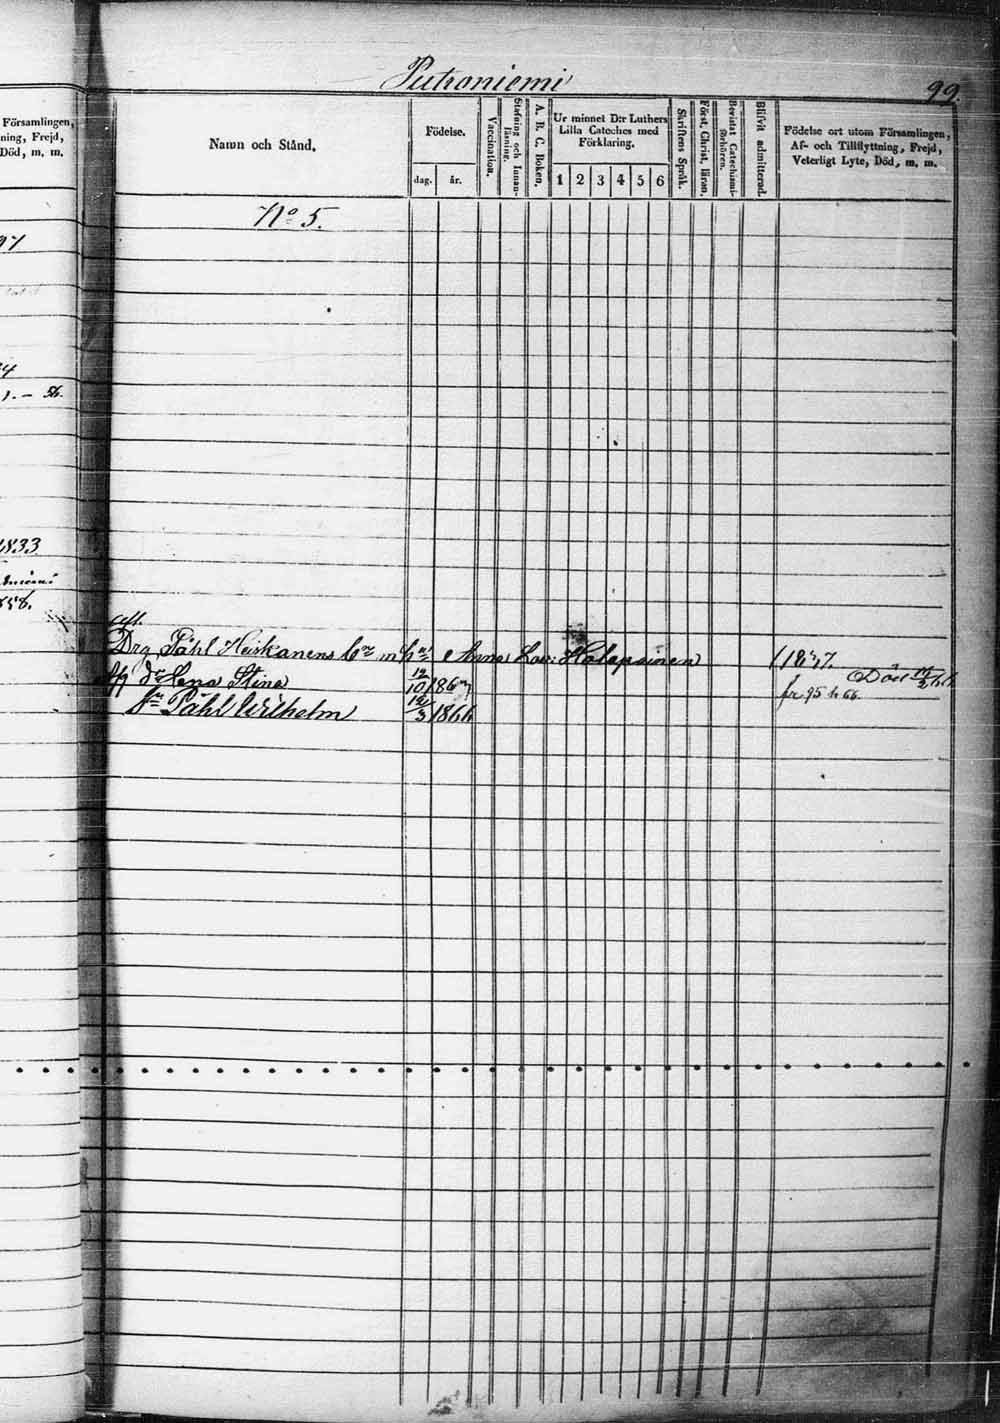 Putroniemi
99.
Församlingen,
ning, Frejd,
Död, m. m.
Namn och Stånd.
Födelse.
dag.
år.
Vaccination.
Stafning och Innan-
läsning.
A. B. C. Boken.
Ur minnet D:r Luthers
Lilla Cateches med
Förklaring.
1 2 3 4 5 6
Skriftens Språk.
Först. Christ. läran.
Bevistat Catechismi-
förhören.
Blifvit admitterad.
Födelse ort utom Församlingen,
Af- och Tillflyttning, Frejd,
Veterligt Lyte, Död, m. m.
No 5.
97
24
1. - 56.
1833
858.
Drg Påhl Heiskanens Anna Lov: Holopainen 1857.
dr Lena Stina 12/10 186 Död
fr 95 h 66.
Sn Påhl Wilhelm 12/3 1866